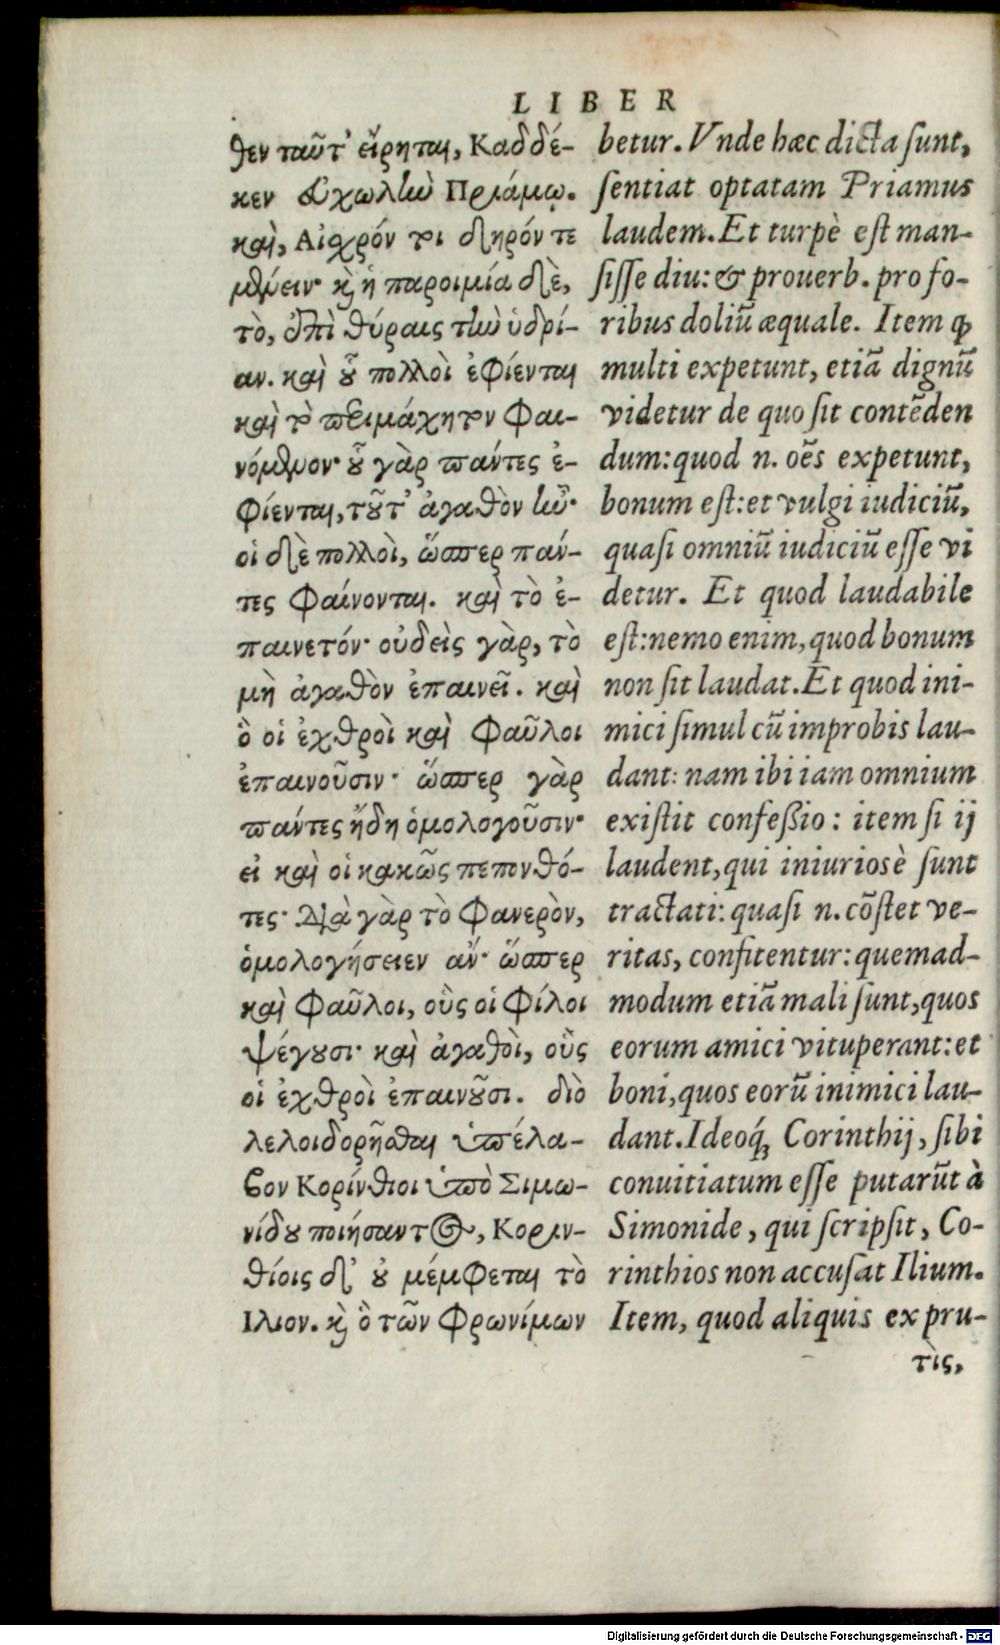 LIBER
θεν ταῦτ' εἴρηται, Καδδέ-
κεν εὐχωλὴν Πριάμῳ.
καὶ, Αἰσχρόν τι δηρόν τε
μένειν· καὶ ἡ παροιμία δὲ,
τὸ, ἐπὶ θύραις τὴν ὑδρί-
αν. καὶ οὗ πολλοὶ ἐφίενται
καὶ τὸ περιμάχητον φαι-
νόμενον· οὗ γὰρ πάντες ἐ-
φίενται, τοῦτ' ἀγαθὸν ἦν·
οἱ δὲ πολλοὶ, ὥσπερ πάν-
τες φαίνονται. καὶ τὸ ἐ-
παινετόν· οὐδεὶς γὰρ, τὸ
μὴ ἀγαθὸν ἐπαινεῖ. καὶ
ὃ οἱ ἐχθροὶ καὶ φαῦλοι
ἐπαινοῦσιν· ὥσπερ γὰρ
πάντες ἤδη ὁμολογοῦσιν·
εἰ καὶ οἱ κακῶς πεπονθό-
τες· διὰ γὰρ τὸ φανερὸν,
ὁμολογήσειεν ἄν· ὥσπερ
καὶ φαῦλοι, οὓς οἱ φίλοι
ψέγουσι· καὶ ἀγαθοὶ, οὓς
οἱ ἐχθροὶ ἐπαινοῦσι. διὸ
λελοιδορῆσθαι ὑπέλα-
βον Κορίνθιοι ὑπὸ Σιμω-
νίδου ποιήσαντος, Κοριν-
θίοις δ' οὐ μέμφεται τὸ
Ιλιον. καὶ ὃ τῶν φρωνίμων
betur. Vnde hæc dicta sunt,
sentiat optatam Priamus
laudem. Et turpè est man-
sisse diu: & prouerb. pro fo-
ribus doliũ æquale. Item ꝙ
multi expetunt, etiã dignũ
videtur de quo sit contẽden
dum: quod n. oẽs expetunt,
bonum est: et vulgi iudiciũ,
quasi omniũ iudiciũ esse vi
detur. Et quod laudabile
est: nemo enim, quod bonum
non sit laudat. Et quod ini-
mici simul cũ improbis lau-
dant: nam ibi iam omnium
existit confeßio: item si ij
laudent, qui iniuriosè sunt
tractati: quasi n. cõstet ve-
ritas, confitentur: quemad-
modum etiã mali sunt, quos
eorum amici vituperant: et
boni, quos eorũ inimici lau-
dant. Ideoq́ꝫ Corinthij, sibi
conuitiatum esse putarũt à
Simonide, qui scripsit, Co-
rinthios non accusat Ilium.
Item, quod aliquis ex pru-
τὶς,
Digitalisierung gefördert durch die Deutsche Forschungsgemeinschaft - DFG